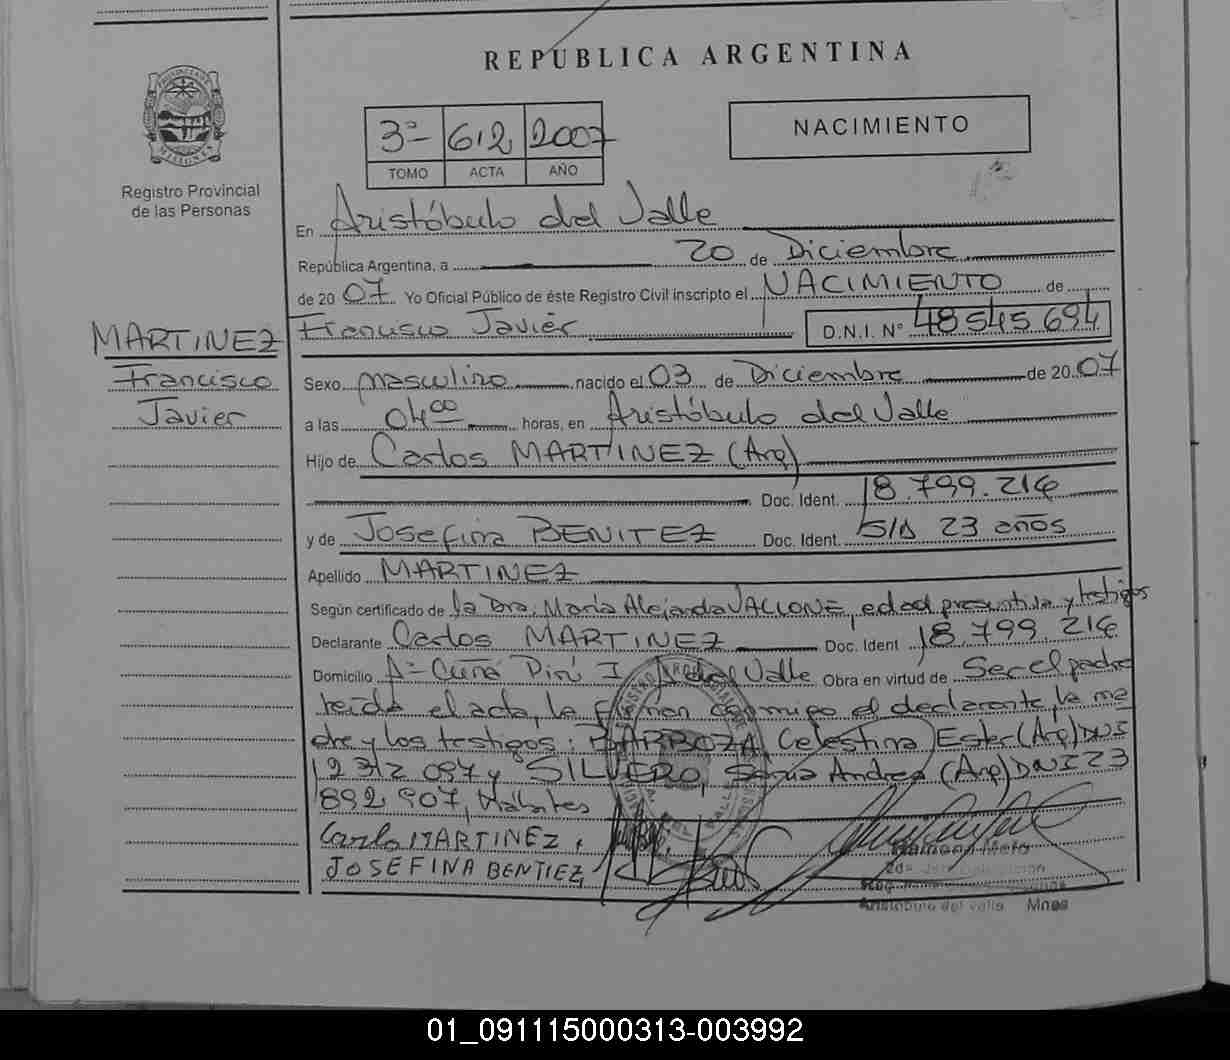 REPUBLICA ARGENTINA
3ª 612 2007
TOMO ACTA AÑO
NACIMIENTO
MISIONES
Registro Provincial
de las Personas
MARTINEZ
Francisco
Javier
En Aristóbulo del Valle
República Argentina, a 20 de Diciembre
de 2007 Yo Oficial Público de éste Registro Civil inscripto el NACIMIENTO de
Francisco Javier D.N.I. Nº 48545694
Sexo masculino nacido el 03 de Diciembre de 2007
a las 04⁰⁰ horas, en Aristóbulo del Valle
Hijo de Carlos MARTINEZ (Arg)
Doc. Ident. 18.799.216
y de Josefina BENITEZ Doc. Ident. S/D 23 años
Apellido MARTINEZ
Según certificado de la Dra. María Alejanda VALLONE, edad presuntiva y testigos
Declarante Carlos MARTINEZ Doc. Ident 18.799.216
Domicilio Aº Cuña Pirú I A. del Valle Obra en virtud de Ser el padre
leida el acta, la firman conmigo el declarante, la ma
dre y los testigos: BARBOZA, Celestina Ester (Arg) DNI
12312 097 y SILVERO, Sonia Andrea (Arg) DNI 23
892 907, Hábiles
Carlo MARTINEZ,
JOSEFINA BENTIEZ
Ramona Melo
Aristobulo del Valle Mnes
01_091115000313-003992